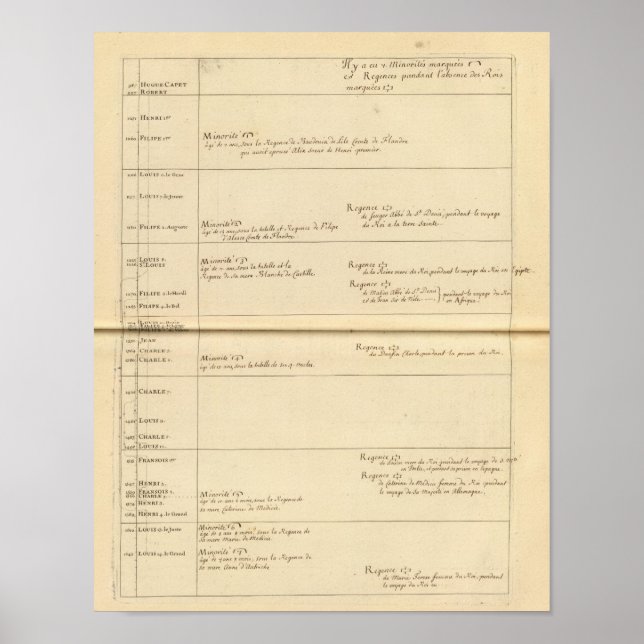 Il y a eu 7 Minorités marquées
et Regences pandant l'absence des Rois
marquées
987 HUGUE CAPET
997 ROBERT
1031 HENRI 1er
1060 FILIPE 1er
Minorité
âgé de 7 ans, sous la Regence de Baudouin de Lile Comte de Flandre
qui avoit epousé Alix soeur de Henri premier.
LOUIS 6. le Gros
LOUIS 7. le Jeune
Regence
de Suger Abbé de St. Denis, pendant le voyage
du Roi a la terre Sainte
1180 FILIPE 2. Auguste
Minorité
âgé de 15 ans, sous la tutelle et Regence de Filipe
d'Alsace Comte de Flandre.
LOUIS 8.
St. LOUIS
Minorité
âgé de ans, sous la tutelle et la
Regence de sa mere Blanche de Castille.
Regence
de la Reine mere du Roi, pendant le voyage du Roi en Egipte
1270 FILIPE 3. le Hardi
Regence
de Mathieu Abbé de St. Denis
et de Simon de Nele
pendant le voyage du Roi
en Afrique
FILIPE 4. le Bel
1350 JEAN
Regence
du Daufin Charle, pendant la prison du Roi.
1364 CHARLE 5.
1380 CHARLE 6.
Minorité
âgé de 12 ans, sous la tutelle de ses 4 oncles.
1422 CHARLE 7.
1461 LOUIS 11.
1483 CHARLE 8.
LOUIS 12.
1515 FRANSOIS 1er
Regence
de Louise mere du Roi, pendant le voyage de S. M.
en Italie, et pendant sa prison en Espagne.
1547 HENRI 2.
Regence
de Caterine de Médicis femme du Roi, pendant
le voyage de Sa Majesté en Allemagne.
1559 FRANSOIS 2.
1560 CHARLE 9.
Minorité
âgé de 10 ans mois, sous la Regence de
sa mere Caterine de Médicis.
1574 HENRI 3.
1589 HENRI 4. le Grand
1610 LOUIS 13. le Juste
Minorité
âgé de 8 ans 8 mois, sous la Regence de
sa mere Marie de Médicis.
1643 LOUIS 14. le Grand
Minorité
âgé de 4 ans 8 mois, sous la Regence de
sa mere Anne d'Autriche
Regence
de Marie Terese femme du Roi, pendant
le voyage du Roi en